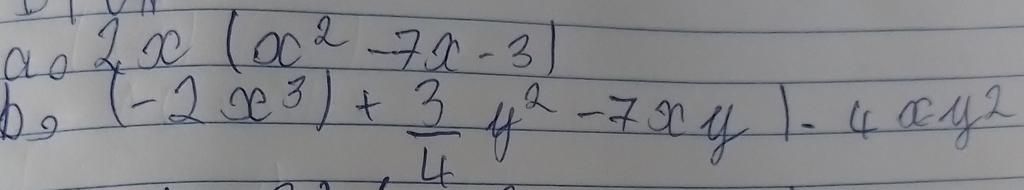 a, 2x (x² - 7x - 3)
b, (-2x³) + 3/4 y² - 7xy) . 4xy²